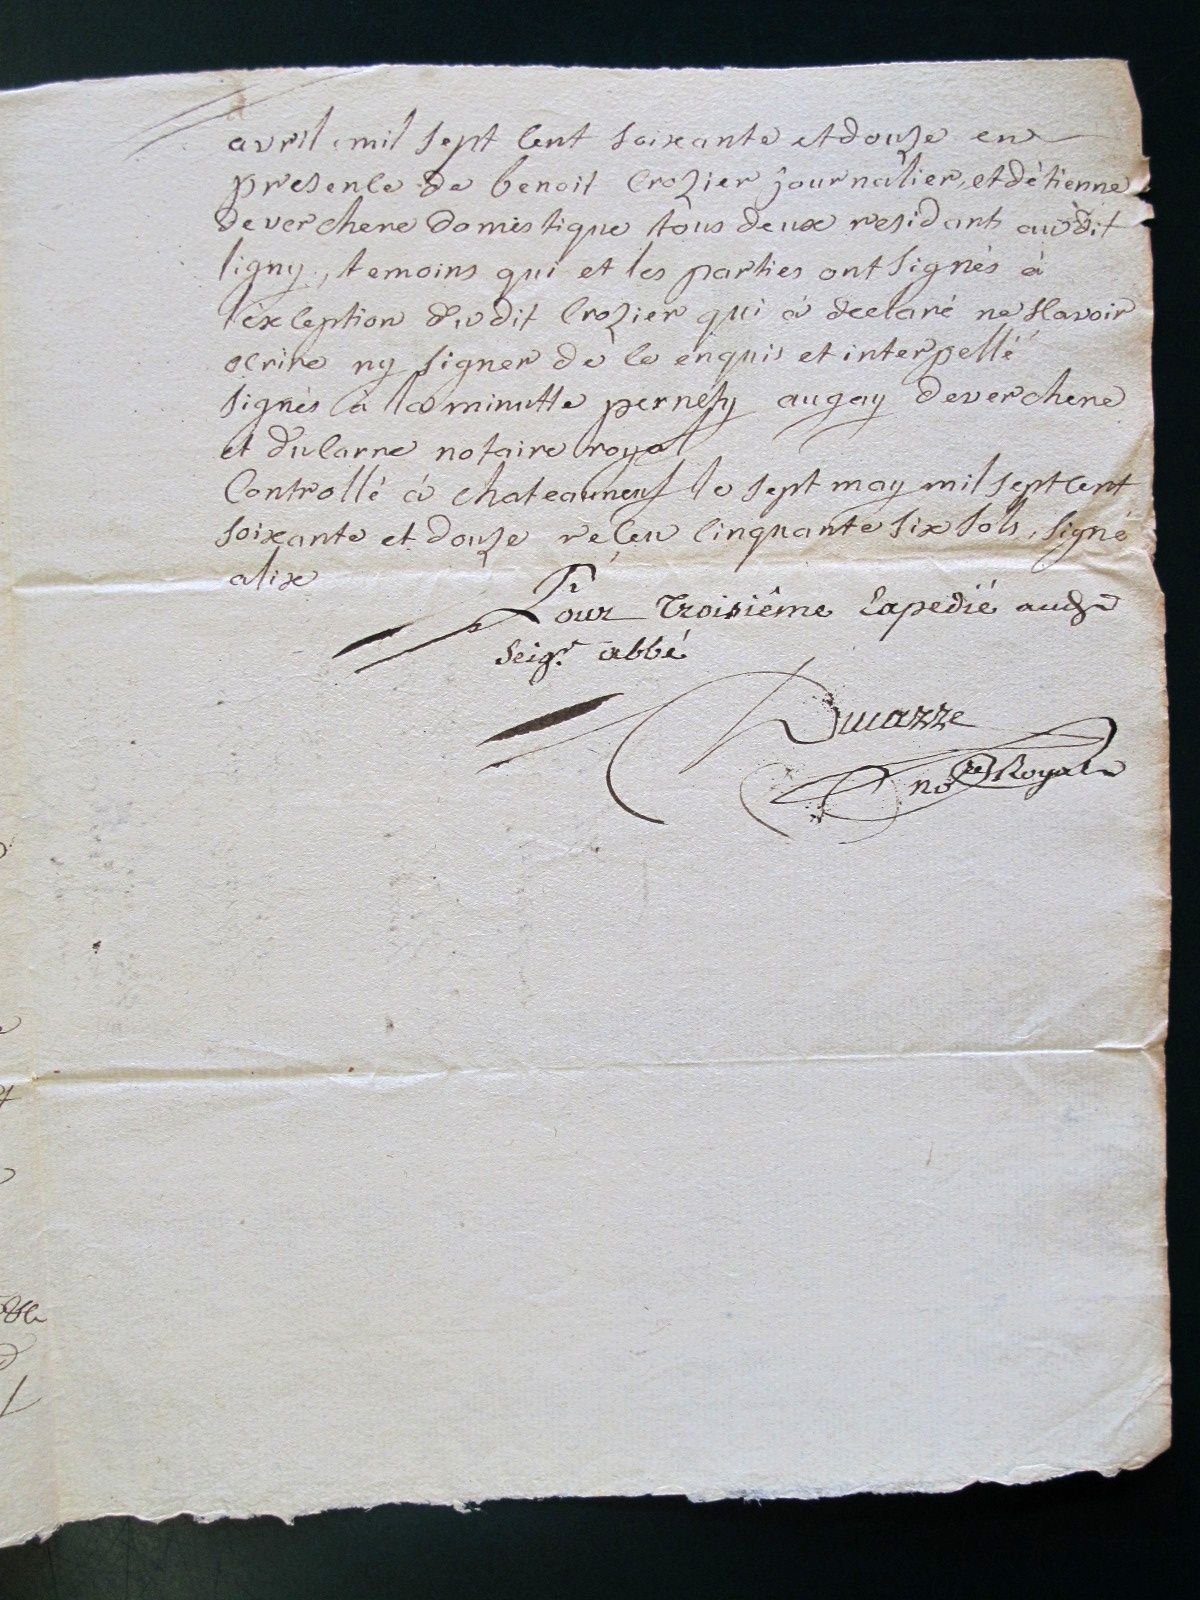 avril mil sept cent soixante et douze en
presence de benoit Crozier journalier, et détienne
deverchere domestique tous deux residants audit
ligny, temoins qui et les parties ont signés à
l'éxception dudit Crozier qui à declaré ne sçavoir
ecrire ny signer de ce enquis et interpellé
signés à la minutte pernety augay deverchere
et ducarre notaire royal
Controllé à chateauneuf le sept may mil sept cent
soixante et douze reçeu cinquante six sols, signé
alix
Pour Troisiême Expedié audt
seigr. abbé
Ducarre
nore Royal